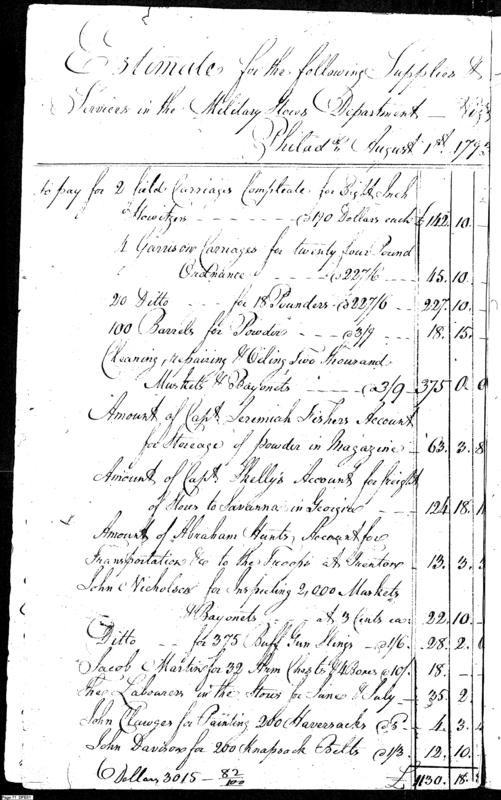 Estimate for the following Supplies &
Services in the Military Stores Department — Viz
Philad.a August 1st. 179
To pay for 2 field Carriages Compleate for Eight Inch
Howitzers @ 190 Dollars each £ 142. 10.
4 Garrison Carriages for twenty four Pound
Ordnance @ 227/6 45. 10.
20 Ditto for 18 Pounders @ 227/6 227. 10.
100 Barrels for Powder @ 3/9 18. 15.
Cleaning, repairing & Oiling Two Thousand
Muskets & Bayonets @ 3/9 375 0. 0
Amount of Capt. Jeremiah Fishers Account
for Storeage of powder in Magazine 63. 3. 8
Amount of Capt. Skelly's Account for freight
of Stores to Savanna in Georgia 124. 18. 1
Amount of Abraham Hunts, Account for
Transportation &c to the Troops at Trenton 13. 3.
John Nicholson for Inspecting 2,000 Muskets
& Bayonets at 3 Cents ea. 22. 10.
Ditto for 375 Buff Gun Slings @ 1/6. 28. 2.
Jacob Martin for 32 Arm Chests & 4 Boxes @ 10/. 18.
The Labourers in the Stores for June & July 35. 2
John Clawges for Painting 200 Haversacks @ 5 4. 3.
John Davison for 200 Knapsack Belts @ 1/3 12. 10.
Dollars 3015 - 82/100 £ 1130. 18.